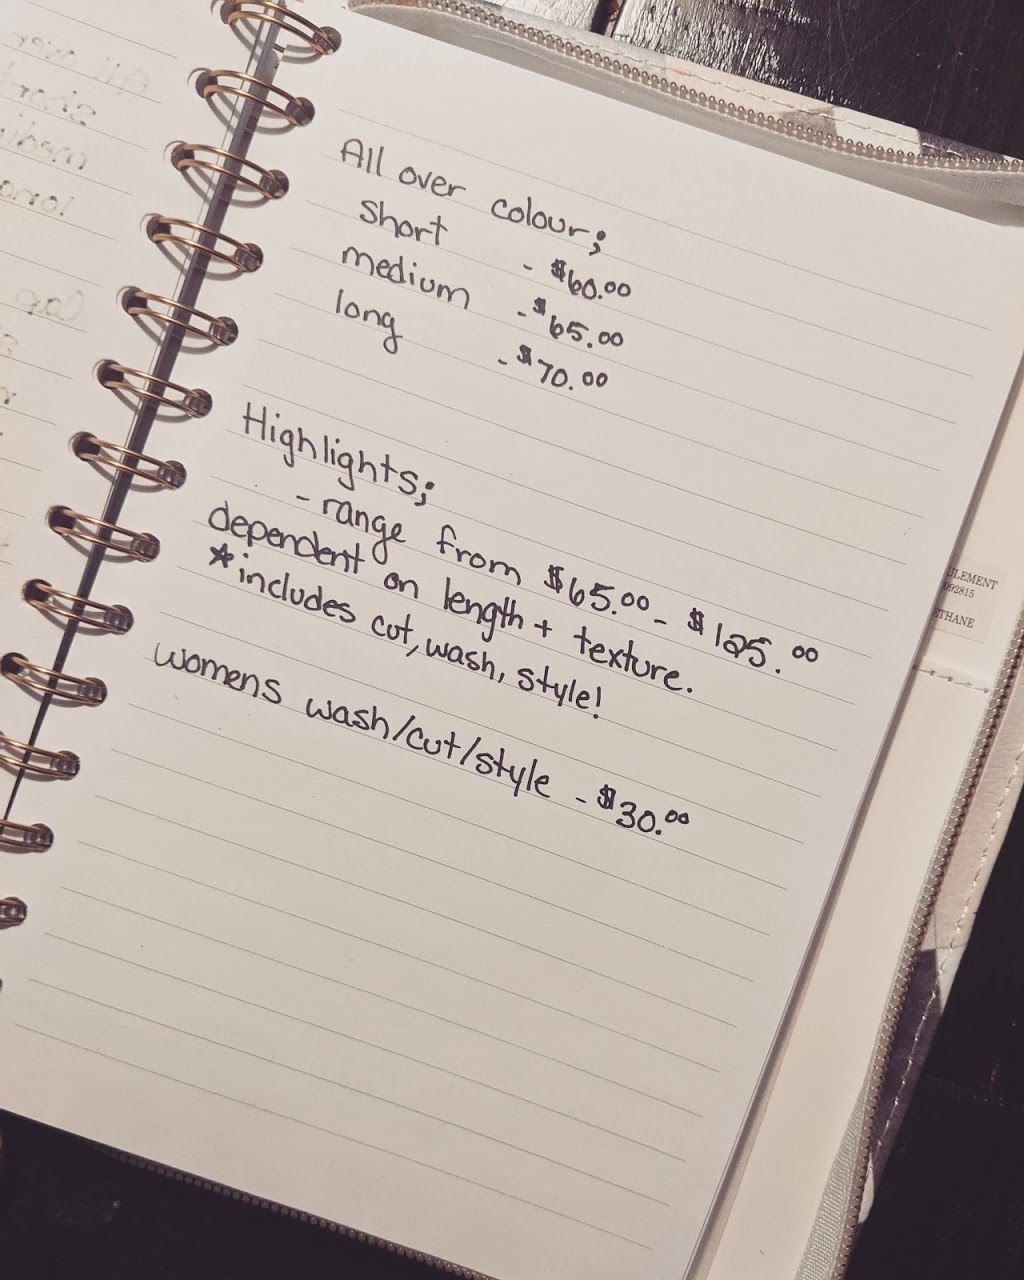 All over colour;
short - $60.00
medium - $65.00
long - $70.00
Highlights;
- range from $65.00 - $125.00
dependent on length + texture.
*includes cut, wash, style!
womens wash/cut/style - $30.00
ULEMENT
092815
ETHANE